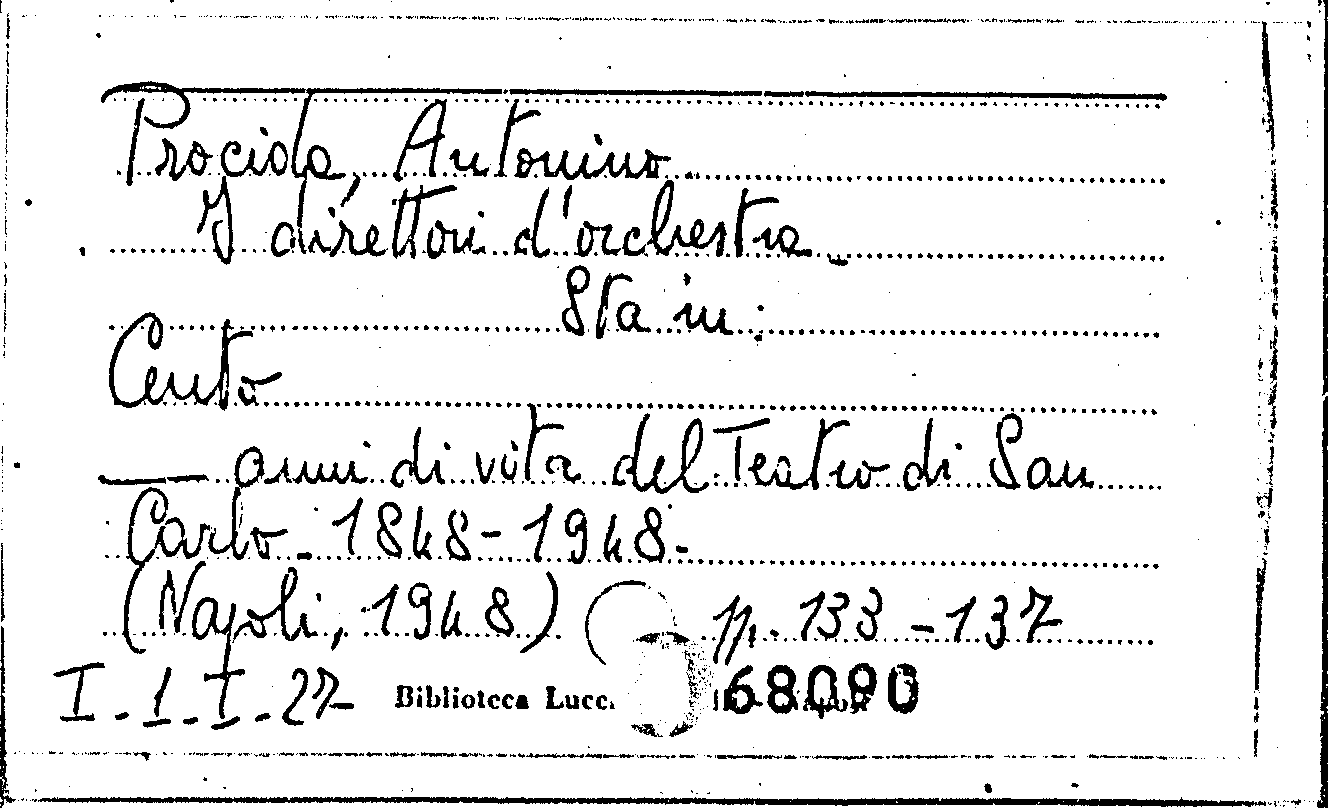 Procida, Antonino.
I direttori d'orchestra.
Sta in:
Cento
— anni di vita del Teatro di San
Carlo. 1848-1948.
(Napoli, 1948) pp. 133-137
I.1.I.27 Biblioteca Lucc. 68090